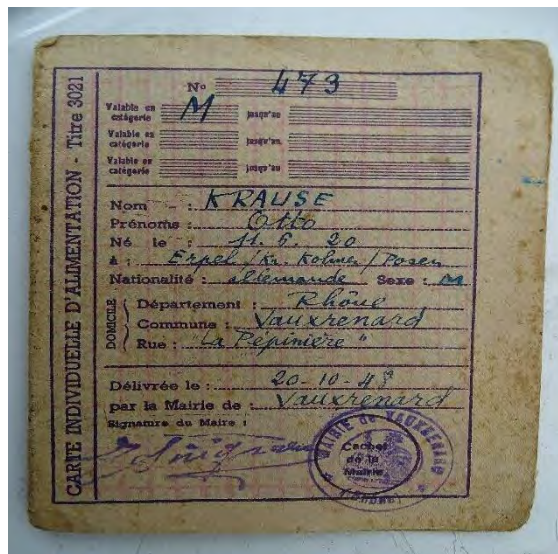 CARTE INDIVIDUELLE D'ALIMENTATION - Titre 3021
N° 473
Valable en catégorie M jusqu'au
Valable en catégorie jusqu'au
Valable en catégorie jusqu'au
Nom : KRAUSE
Prénoms : Otto
Né le : 11. 6. 20
à : Erpel / Kr. Kolmar / Posen
Nationalité : allemande Sexe : M
DOMICILE
Département : Rhône
Commune : Vauxrenard
Rue : "La Pépinière"
Délivrée le : 20-10-48
par la Mairie de : Vauxrenard
Signature du Maire :
MAIRIE de VAUXRENARD
Cachet
de la
Mairie
(RHÔNE)